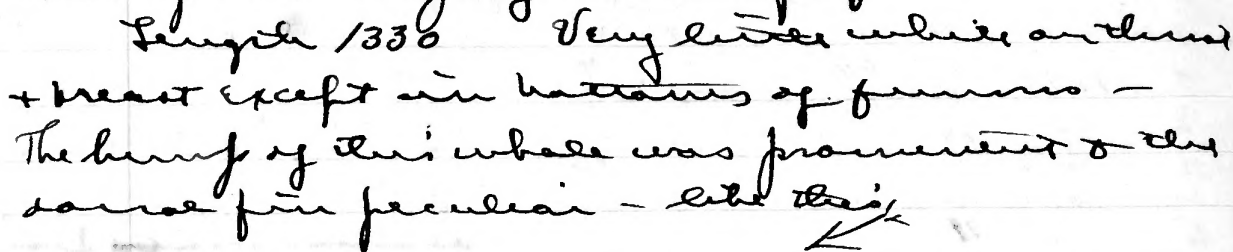 Length 1330 Very little white on throat
+ breast except in bottoms of furrows -
The hump of this whale was prominent & the
dorsal fin peculiar - like this